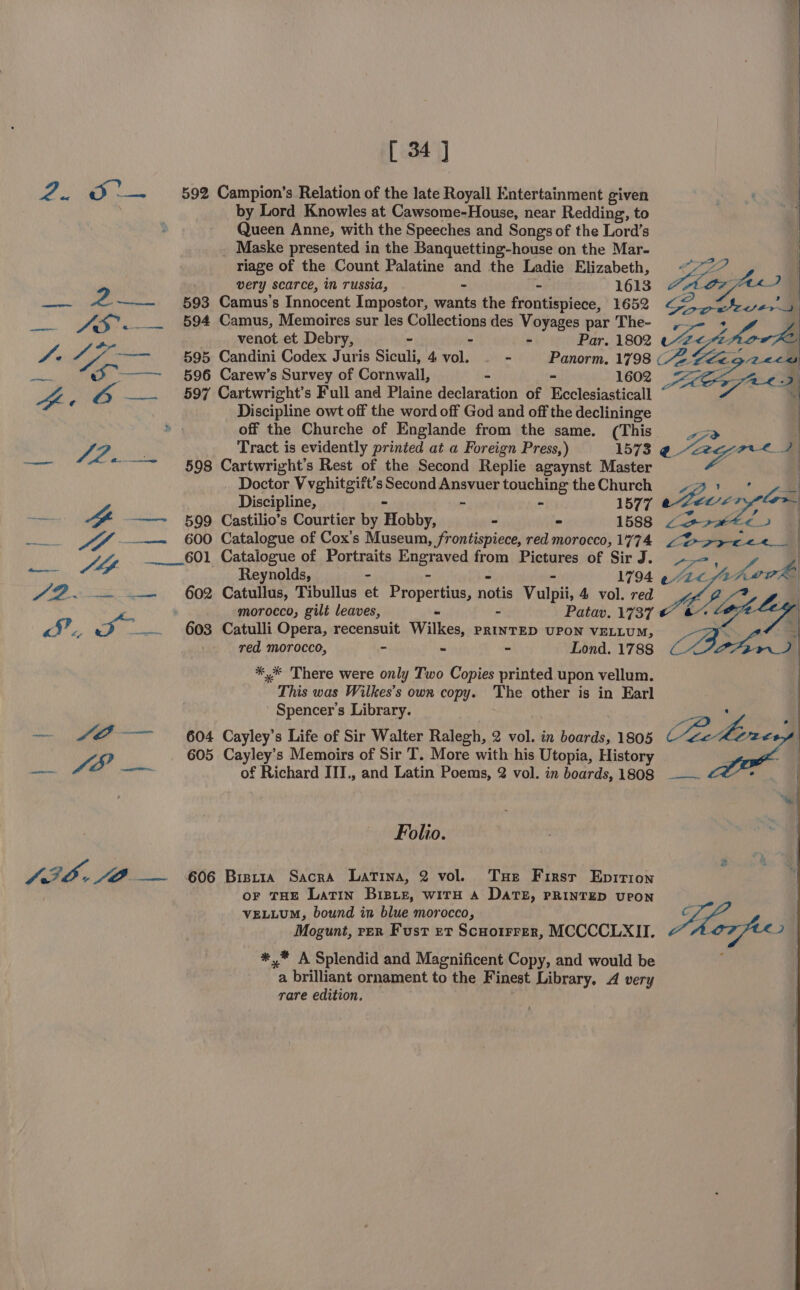 [ 34 ]
2. 5 — 592 Campion's Relation of the late Royall Entertainment given
by Lord Knowles at Cawsome-House, near Redding, to
Queen Anne, with the Speeches and Songs of the Lord's
Maske presented in the Banquetting-house on the Mar-
riage of the Count Palatine and the Ladie Elizabeth,
very scarce, in russia, - - 1613 Thorpe
— 2 — 593 Camus's Innocent Impostor, wants the frontispiece, 1652
594 Camus, Memoires sur les Collections des Voyages par The-
venot et Debry, - - - Par. 1802
595 Candini Codex Juris Siculi, 4 vol. - Panorm. 1798
— 5 — 596 Carew's Survey of Cornwall, - - 1602
4. 6 — 597 Cartwright's Full and Plaine declaration of Ecclesiasticall
Discipline owt off the word off God and off the declininge
off the Churche of Englande from the same. (This
Tract is evidently printed at a Foreign Press,) 1573
— 12. — 598 Cartwright's Rest of the Second Replie agaynst Master
Doctor Vvghitgift's Second Ansvuer touching the Church
Discipline, - - - 1577
— 4 — 599 Castilio's Courtier by Hobby, - - 1588
600 Catalogue of Cox's Museum, frontispiece, red morocco, 1774
— 14 — 601 Catalogue of Portraits Engraved from Pictures of Sir J.
Reynolds, - - - - 1794
12. — — 602 Catullus, Tibullus et Propertius, notis Vulpii, 4 vol. red
morocco, gilt leaves, - - Patav. 1737
8. 5 — 603 Catulli Opera, recensuit Wilkes, PRINTED UPON VELLUM,
red morocco, - - - Lond. 1788 Bohn
*⁎* There were only Two Copies printed upon vellum.
This was Wilkes's own copy. The other is in Earl
Spencer's Library.
— 10 — 604 Cayley's Life of Sir Walter Ralegh, 2 vol. in boards, 1805
— 18 — 605 Cayley's Memoirs of Sir T. More with his Utopia, History
of Richard III., and Latin Poems, 2 vol. in boards, 1808 —
Folio.
136. 10 — 606 BIBLIA SACRA LATINA, 2 vol. THE FIRST EDITION
OF THE LATIN BIBLE, WITH A DATE, PRINTED UPON
VELLUM, bound in blue morocco,
Mogunt, PER FUST ET SCHOIFFER, MCCCCLXII. Thorpe
*⁎* A Splendid and Magnificent Copy, and would be
a brilliant ornament to the Finest Library. A very
rare edition.